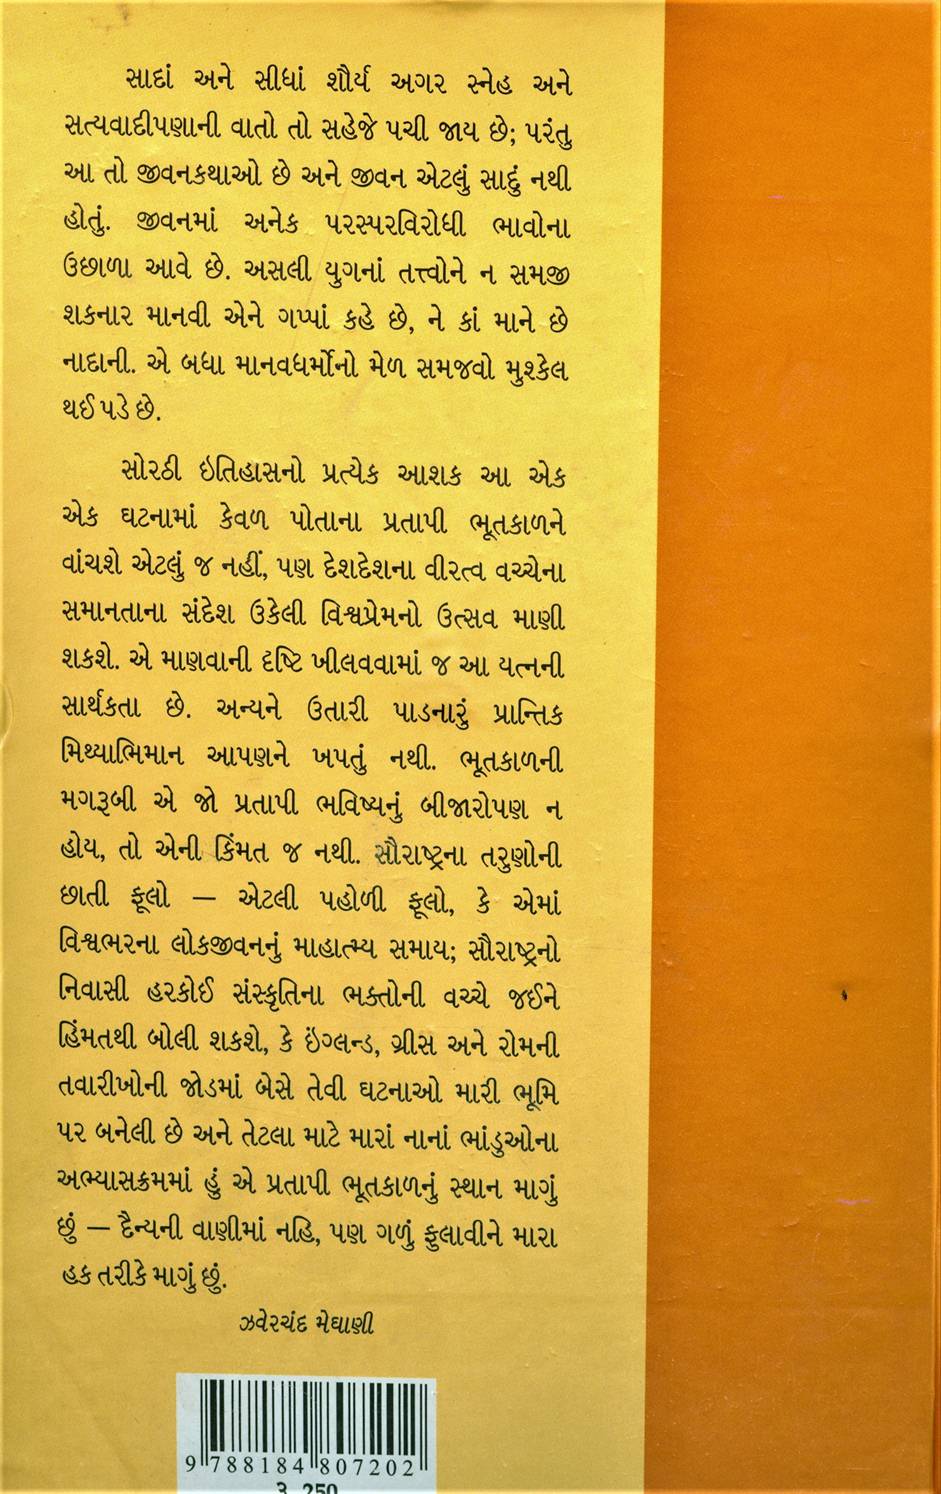 સાદાં અને સીધાં શૌર્ય અગર સ્નેહ અને
સત્યવાદીપણાની વાતો તો સહેજે પચી જાય છે; પરંતુ
આ તો જીવનકથાઓ છે અને જીવન એટલું સાદું નથી
હોતું. જીવનમાં અનેક પરસ્પરવિરોધી ભાવોના
ઉછાળા આવે છે. અસલી યુગનાં તત્ત્વોને ન સમજી
શકનાર માનવી એને ગપ્પાં કહે છે, ને કાં માને છે
નાદાની. એ બધા માનવધર્મોનો મેળ સમજવો મુશ્કેલ
થઈ પડે છે.
સોરઠી ઇતિહાસનો પ્રત્યેક આશક આ એક
એક ઘટનામાં કેવળ પોતાના પ્રતાપી ભૂતકાળને
વાંચશે એટલું જ નહીં, પણ દેશદેશના વીરત્વ વચ્ચેના
સમાનતાના સંદેશ ઉકેલી વિશ્વપ્રેમનો ઉત્સવ માણી
શકશે. એ માણવાની દૃષ્ટિ ખીલવવામાં જ આ યત્નની
સાર્થકતા છે. અન્યને ઉતારી પાડનારું પ્રાન્તિક
મિથ્યાભિમાન આપણને ખપતું નથી. ભૂતકાળની
મગરૂબી એ જો પ્રતાપી ભવિષ્યનું બીજારોપણ ન
હોય, તો એની કિંમત જ નથી. સૌરાષ્ટ્રના તરુણોની
છાતી ફૂલો — એટલી પહોળી ફૂલો, કે એમાં
વિશ્વભરના લોકજીવનનું માહાત્મ્ય સમાય; સૌરાષ્ટ્રનો
નિવાસી હરકોઈ સંસ્કૃતિના ભક્તોની વચ્ચે જઈને
હિંમતથી બોલી શકશે, કે ઇંગ્લન્ડ, ગ્રીસ અને રોમની
તવારીખોની જોડમાં બેસે તેવી ઘટનાઓ મારી ભૂમિ
પર બનેલી છે અને તેટલા માટે મારાં નાનાં ભાંડુઓના
અભ્યાસક્રમમાં હું એ પ્રતાપી ભૂતકાળનું સ્થાન માગું
છું — દૈન્યની વાણીમાં નહિ, પણ ગળું ફુલાવીને મારા
હક તરીકે માગું છું.
ઝવેરચંદ મેઘાણી
9 788184 807202